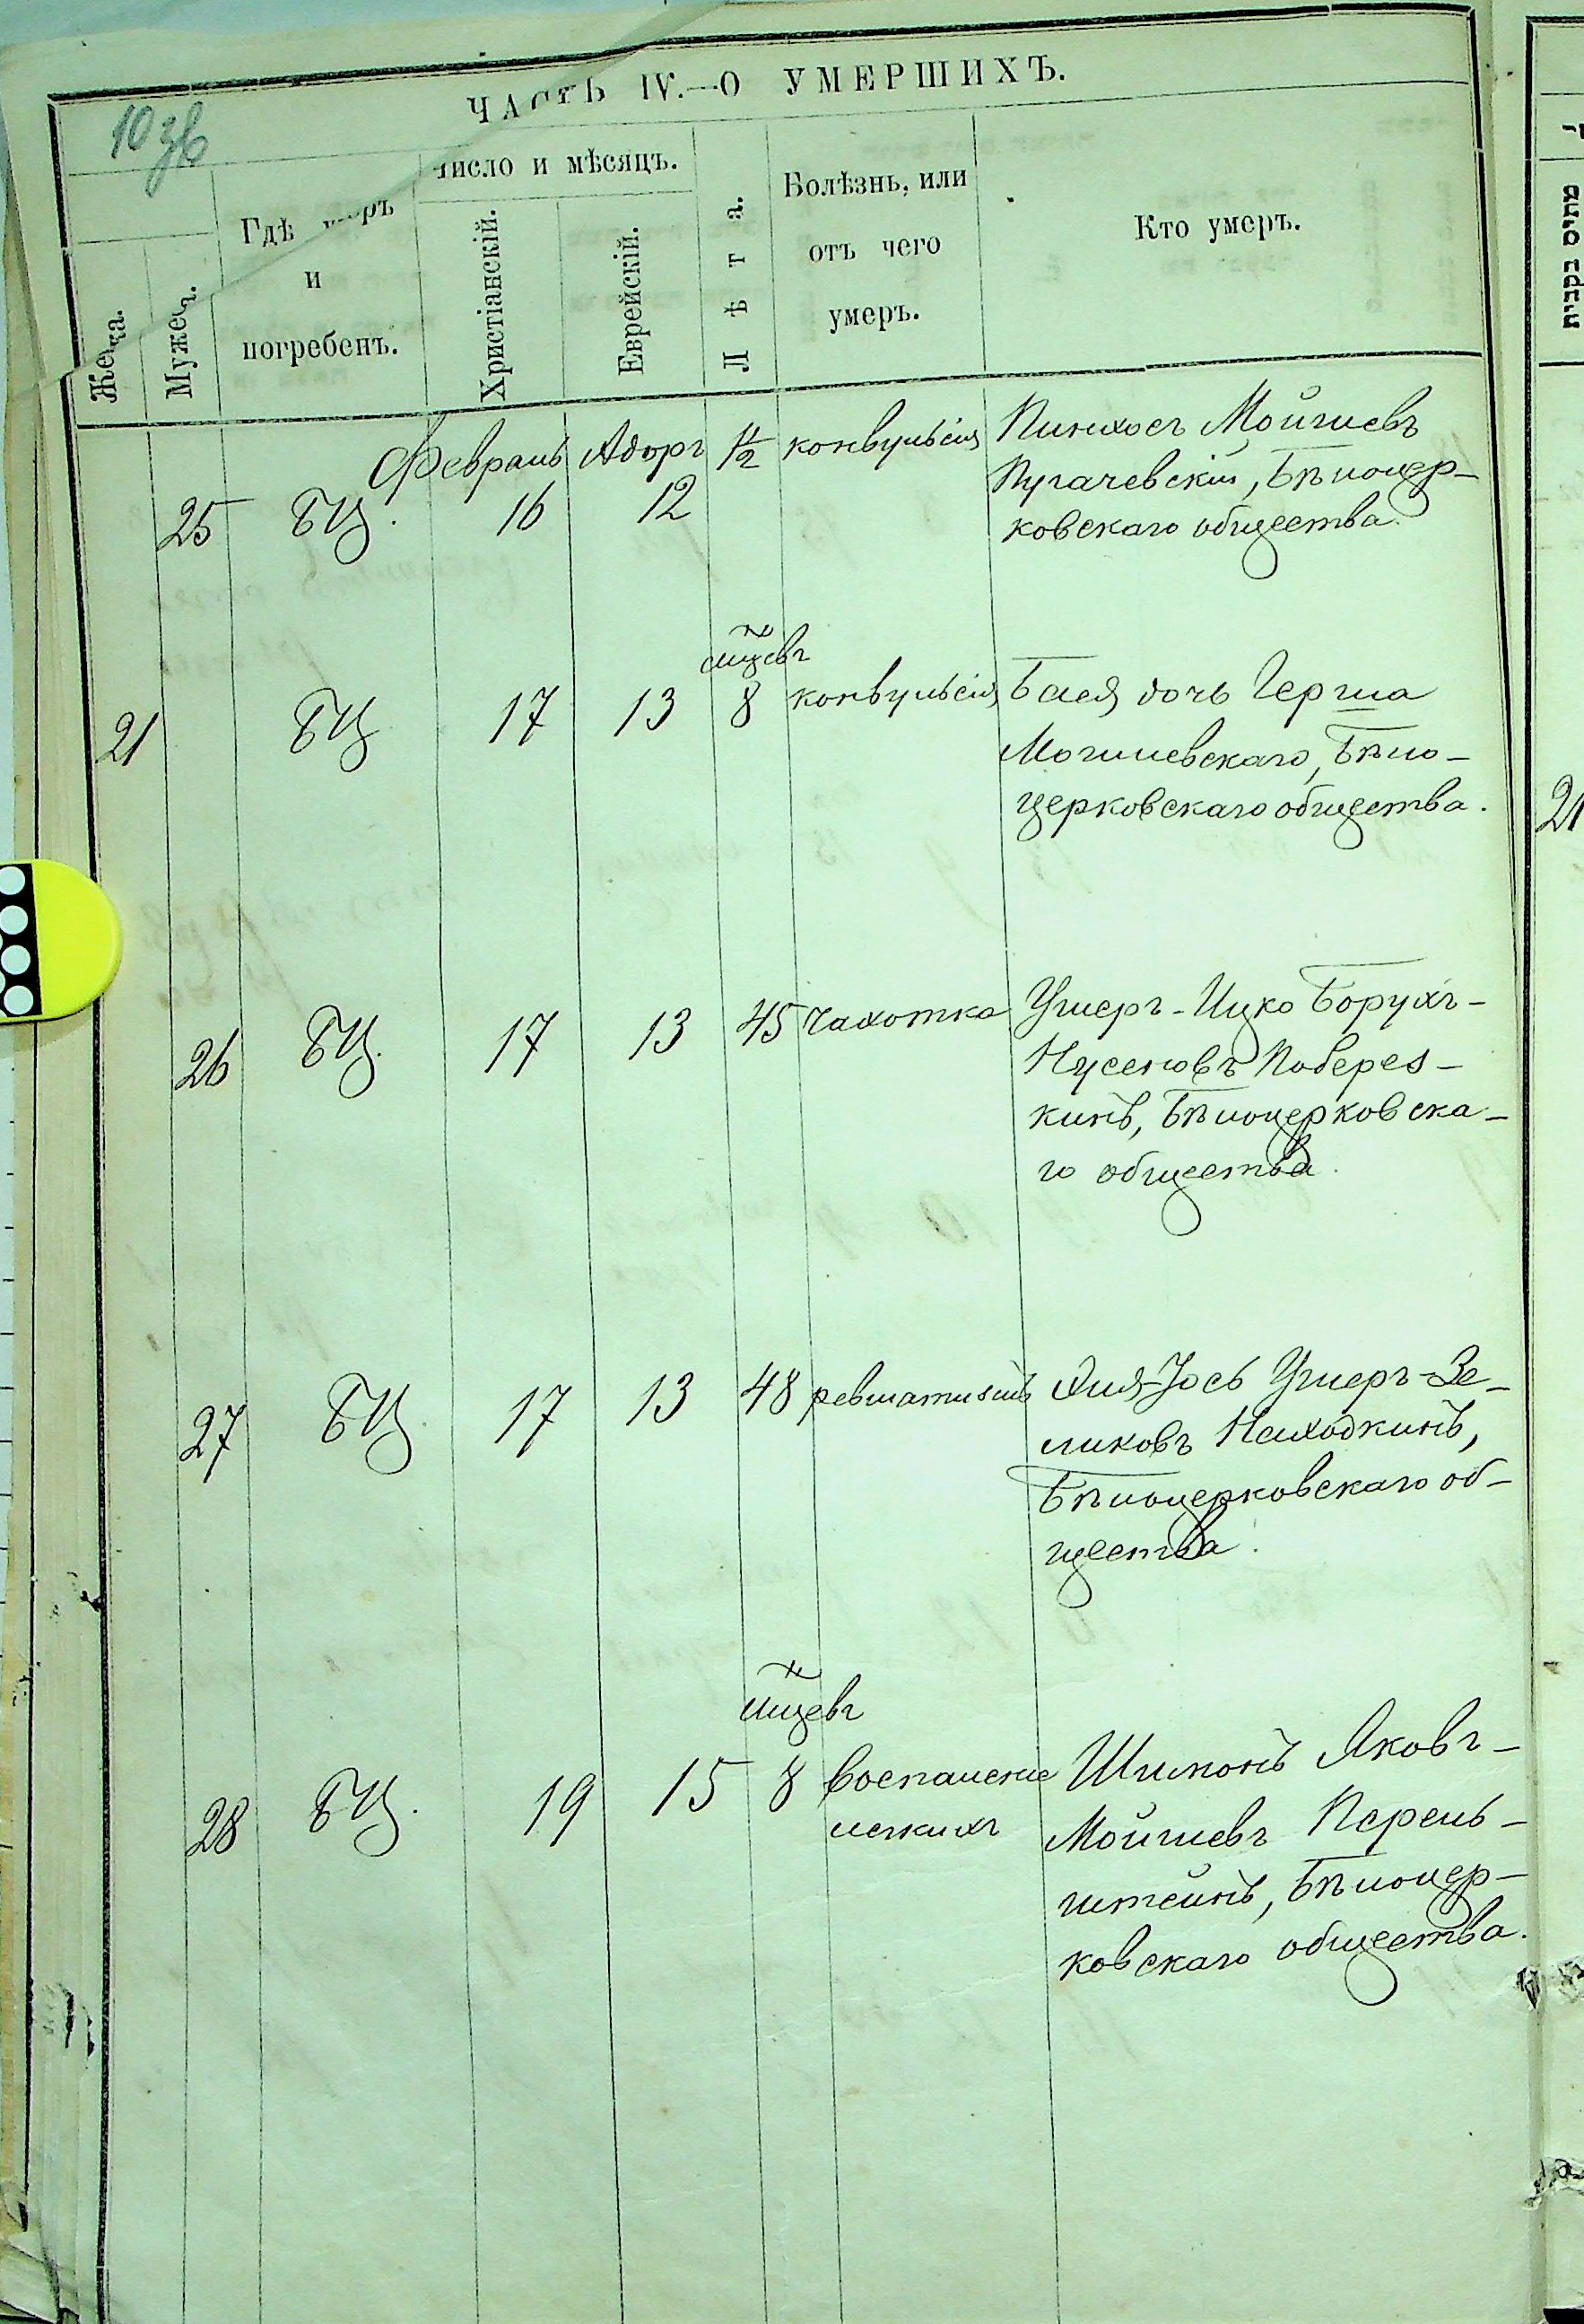 ЧАСТЬ IV.—О УМЕРШИХЪ.
10 зв
Женска.
Мужеск.
Гдѣ умеръ
и
погребенъ.
Число и мѣсяцъ.
Христіанскій.
Еврейскій.
Лѣта.
Болѣзнь, или
отъ чего
умеръ.
Кто умеръ.
Февраль Адоръ 1½ конвульсія Пинхосъ Мойшевъ
25 БЦ. 16 12 Пугачевскій, Бѣлоцер-
ковскаго общества.
мцевъ
21 БЦ 17 13 8 конвульсія Бася дочь Герша
Могилевскаго, Бѣло-
церковскаго общества.
26 БЦ. 17 13 45 чахотка Ушеръ-Ицко Борухъ-
Нусеновъ Поберез-
кинъ, Бѣлоцерковска-
го общества.
27 БЦ. 17 13 48 ревматизмъ Ушеръ-Зе-
ликовъ Находкинъ,
Бѣлоцерковскаго об-
щества.
мцевъ
28 БЦ. 19 15 8 воспаленіе Шимонъ Яковъ-
легкихъ Мойшевъ Перель-
штейнъ, Бѣлоцер-
ковскаго общества.
21